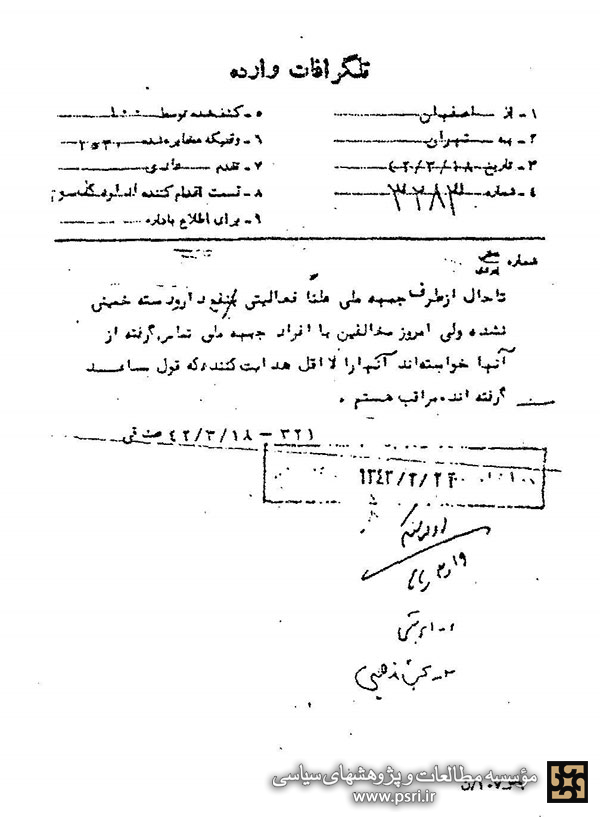 تلگرافات وارده
۱- از اصفهان
۲- به تهران
۳- تاریخ ۴۲/۳/۱۸
۴- شماره ۳۲۸۳
۵- کشف شده توسط
۶- وقتیکه مخابره شده
۷- تقدم عادی
۸- قسمت اقدام کننده
۹- برای اطلاع باداره
شماره
تا حال از طرف جبهه ملی علنا فعالیتی بنفع دارودسته خمینی
نشده ولی امروز مخالفین با افراد جبهه ملی تماس گرفته از
آنها خواسته‌اند آنها را لااقل هدایت کنند، که قول مساعد
گرفته اند. مراقب هستم .
۳۲۱ - ۴۲/۳/۱۸
مؤسسه مطالعات و پژوهشهای سیاسی
www.psri.ir